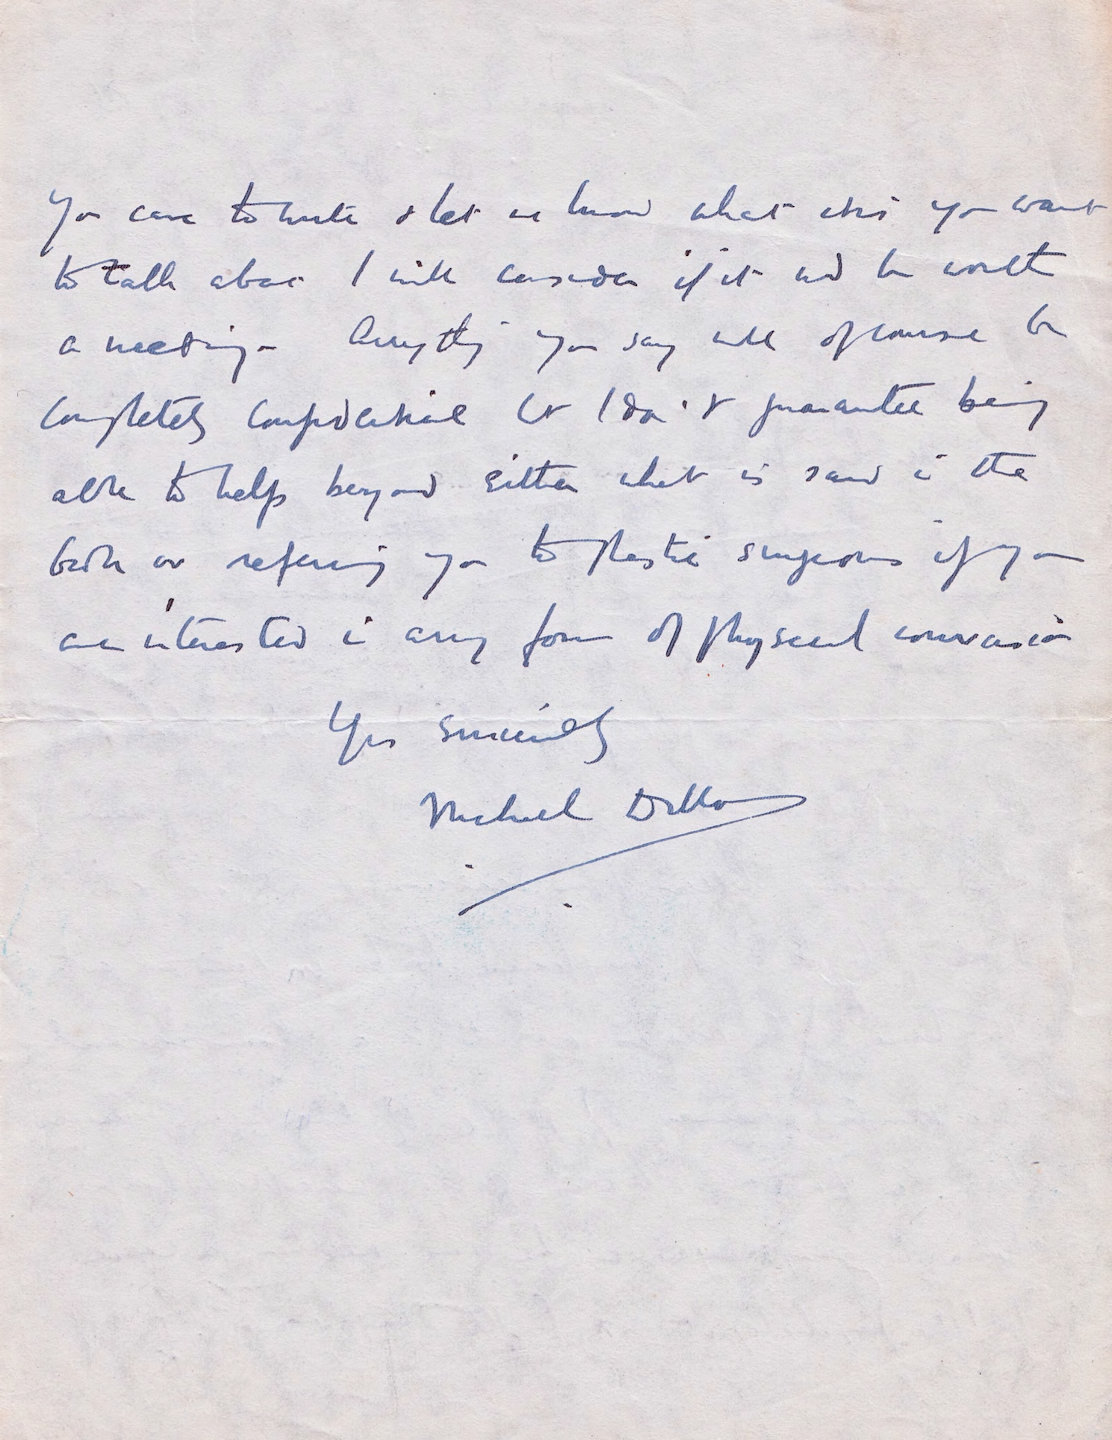 you care to write & let me know what it is you want
to talk about I will consider if it wd be worth
a meeting. Anything you say will of course be
completely confidential but I don't guarantee being
able to help beyond either what is said in the
book or referring you to plastic surgeons if you
are interested in any form of physical conversion
Yrs sincerely
Michael Dillon